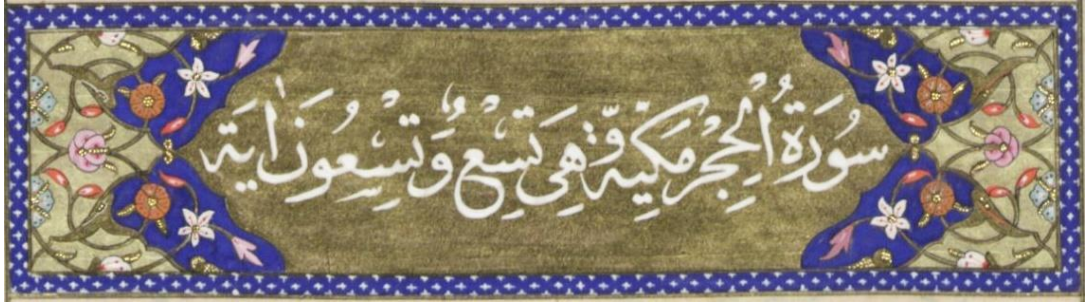 سُورَةُ الْحِجْرِ مَكِّيَّةٌ وَّهِىَ تِسْعٌ وَّتِسْعُونَ اٰيَة